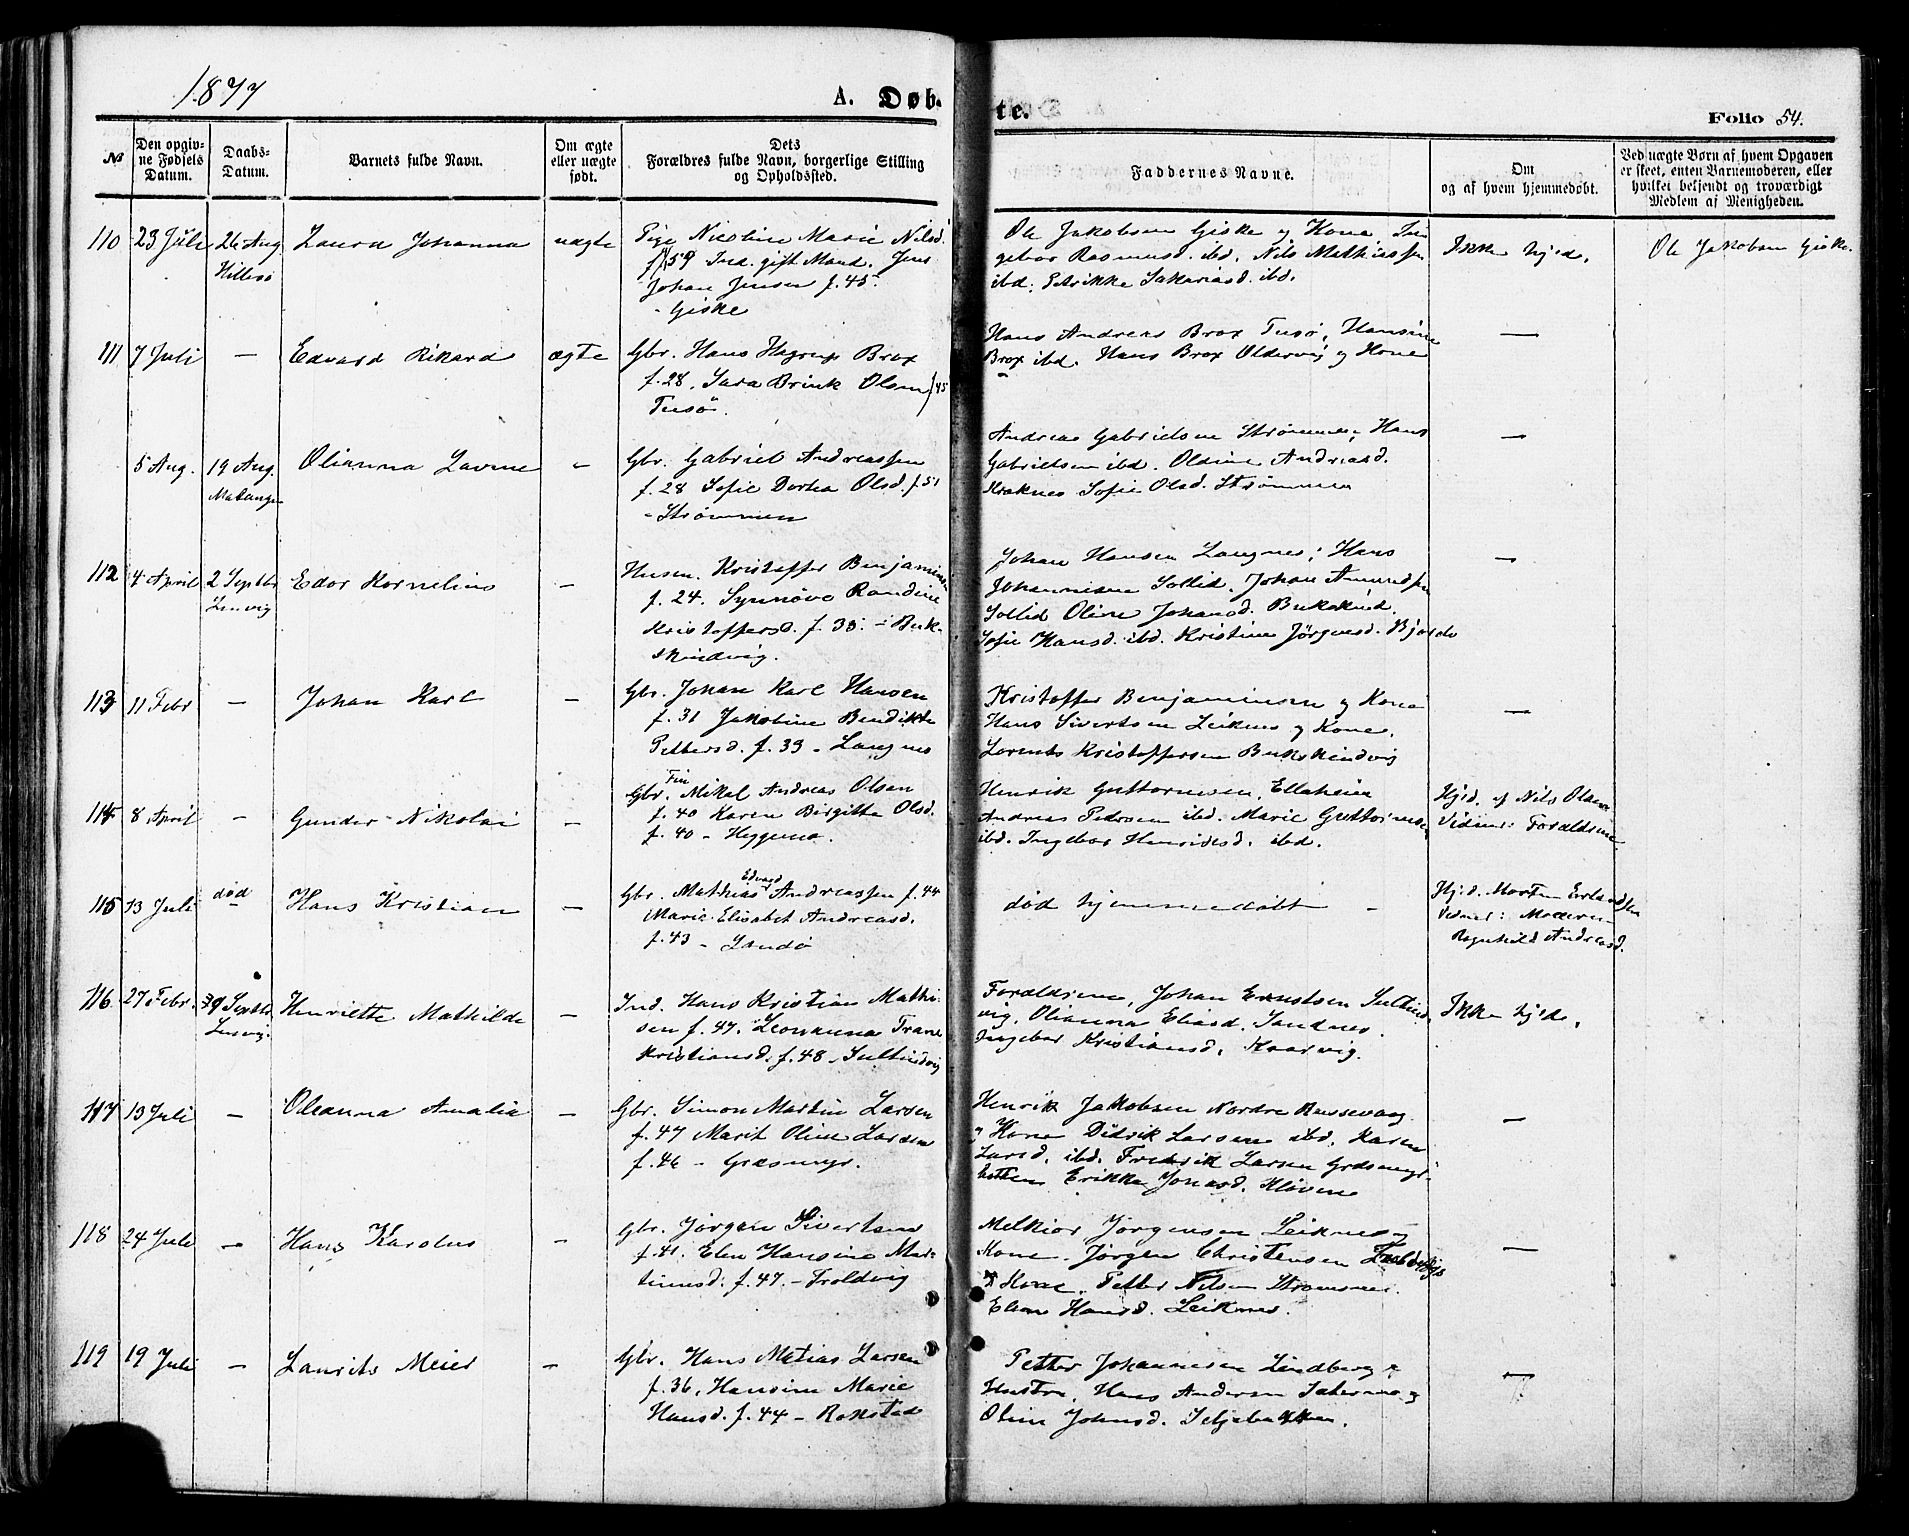 1877
A. Døb-
te.
Folio 54.
№
Den opgiv-
ne Fødsels
Datum.
Daabs-
Datum.
Barnets fulde Navn.
Om ægte
eller uægte
født.
Dets
Forældres fulde Navn, borgerlige Stilling
og Opholdssted.
Faddernes Navne.
Om
og af hvem hjemmedøbt.
Ved uægte Børn af hvem Opgaven
er skeet, enten Barnemoderen, eller
hvilket bekjendt og troværdigt
Medlem af Menigheden.
110 23 Juli 26 Aug Laura Johanna uægte
Hillesø
Pige Nicoline Marie Nilsd.
f. 59 Ind. gift Mand. Jens
Johan Jensen f. 45
- Giske
Ole Jakobsen Giske og Kone In-
gebor Rasmusd. ibd. Nils Mathiassen
ibd. Petrikke Sakariasd. ibd.
Ikke hjed.
Ole Jakobsen Giske.
111 7 Juli — Edvard Rikard ægte
Gbr. Hans Hagrup Brox
f. 28, Sara Brink Olsen f 45
Tusø.
Hans Andreas Brox Tusø, Hansine
Brox ibd. Hans Brox Oldervig og Kone
—
5 Aug. 19 Aug. Olianna Lavine -
Malangen
Gbr. Gabriel Andreassen
f. 28 Sofie Dortea Olsd. f. 51
- Strømmen
Andreas Gabrielsen Strømmen, Hans
Gabrielsen ibd. Oldine Andreasd.
Kraknes Sofie Olsd. Strømmen
—
112 4 April 2 Septbr Edor Kornelius -
Lenvig
Husm. Kristoffer Benjaminsen
f. 24. Synnøve Randine
Kristoffersd. f. 35. - Buk-
skindvig.
Johan Hansen Langnes, Hans
Johannesen Sollid. Johan Amundsen
Sollid Oline Johansd. Bukskind.
Sofie Hansd. ibd. Kristine Jørgensd. Bjorelv
—
113 11 Febr — Johan Karl -
Gbr. Johan Karl Hansen
f. 31 Jakobine Bendikte
Pettersd. f. 39 - Langnes
Kristoffer Benjaminsen og Kone
Hans Sivertsen Leiknes og Kone.
Lorents Kristoffersen Bukskindvig
—
114 8 April - Gunder Nikolai -
Fin
Gbr. Mikal Andreas Olsen
f. 40 Karen Birgitte Olsd.
f. 40 - Heggenes.
Henrik Guttormsen, Ellaheien
Andreas Pedersen ibd. Marie Guttormsen
ibd. Ingebor Henriksd. ibd.
Hjd. af Nils Olsen
Vidner: Forældrene
115 13 Juli død Hans Kristian -
Edvard
Gbr. Mathias Andreassen f. 44
Marie Elisabet Andreasd.
f. 43 - Sandø
død hjemmedøbt -
Hjd. Morten Erlandsen
Vidner: Moderen
Ragnhild Andreasd.
116 27 Febr. 9 Septbr Henriette Mathilde -
Lenvig.
Ind. Hans Kristian Mathi-
sen f. 47. Leonanna Trane
Kristiansd. f. 48 - Sultindvig
Forældrene, Johan Ernstsen Sultind-
vig, Olianna Eliasd. Sandnes
Ingebor Kristiansd. Kaarvig.
Ikke hjed.
117 13 Juli — Oleanna Amalie -
Gbr. Simon Martin Larsen
f. 47 Marit Oline Larsen
f. 46 - Græsmyr.
Henrik Jakobsen Nordre Russevaag
og Kone Didrik Larsen ibd. Karen
Larsd. ibd. Fredrik Larsen Græsmyr-
botten Erikke Jonasd. Kløven
—
118 24 Juli - Hans Karolus -
Gbr. Jørgen Sivertsen
f. 41. Elen Hansine Mar-
tinusd. f. 47. - Troldvig
Melkior Jørgensen Leiknes og
Kone. Jørgen Christensen Troldvig
og Kone. Petter Nilsen Strømsnes.
Elen Hansd. Leiknes.
—
119 19 Juli - Laurits Meier -
Gbr. Hans Matias Larsen
f. 36, Hansine Marie
Hansd. f. 44 - Rokstad
Petter Johannesen Lindberg og
Hustru, Hans Andersen Sæternes og
Oline Johnsd. Seljebakken.
—